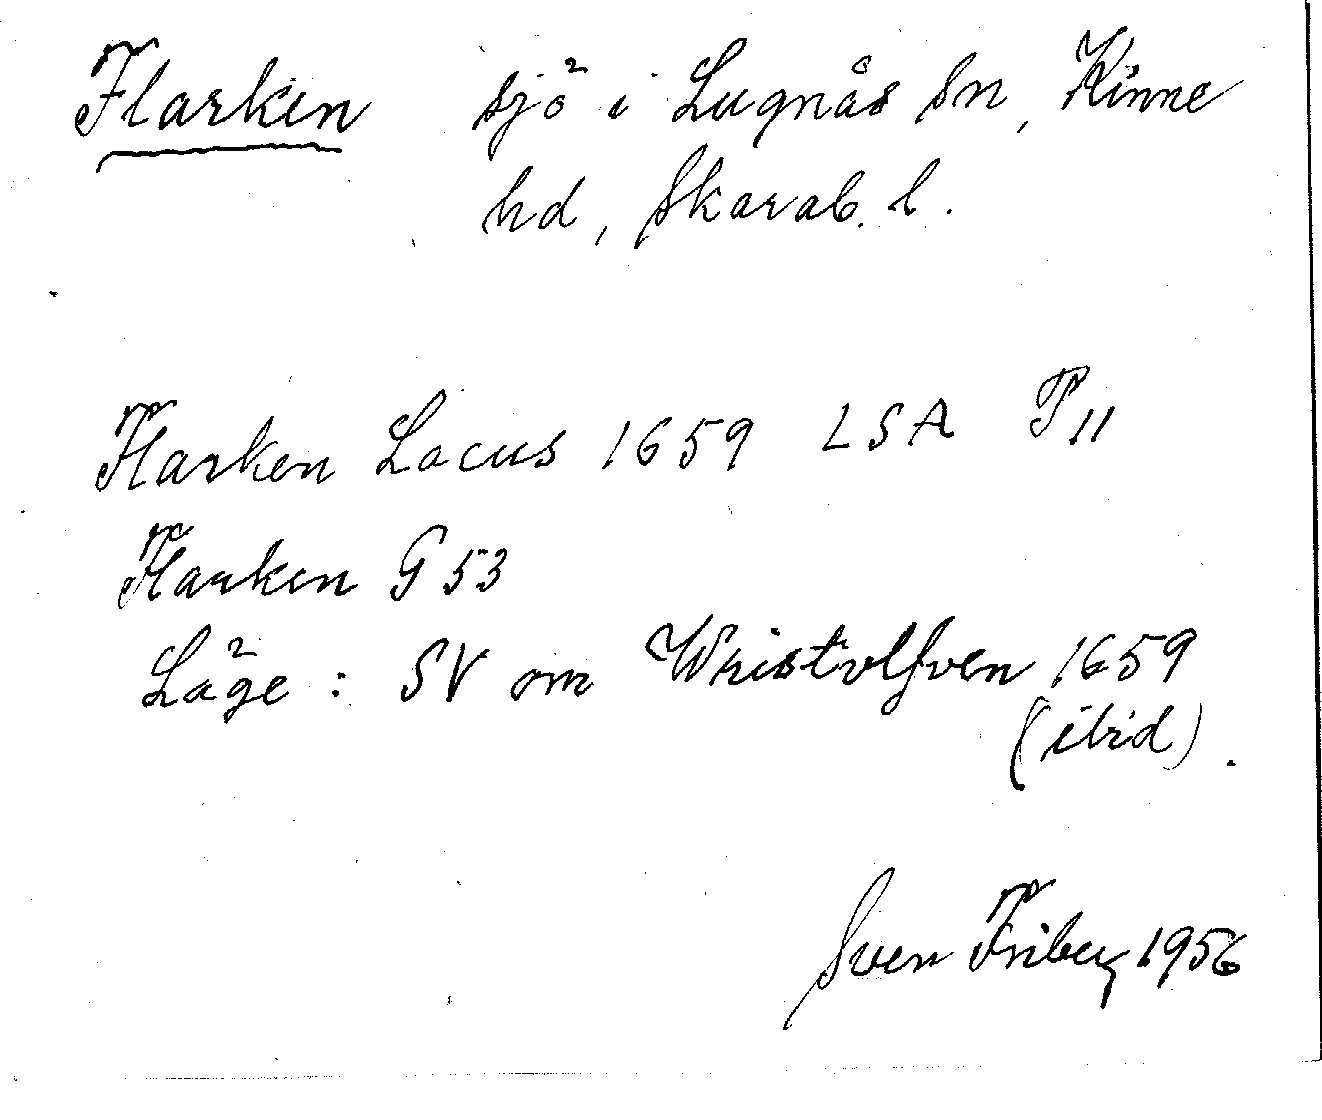 Flarken sjö i Lugnås sn, Kinne
hd, Skarab. l.
Flarken Lacus 1659 LSA P 11
Flarken G 53
Läge: SV om Wristolfven 1659
(ibid).
Sven Friberg 1956